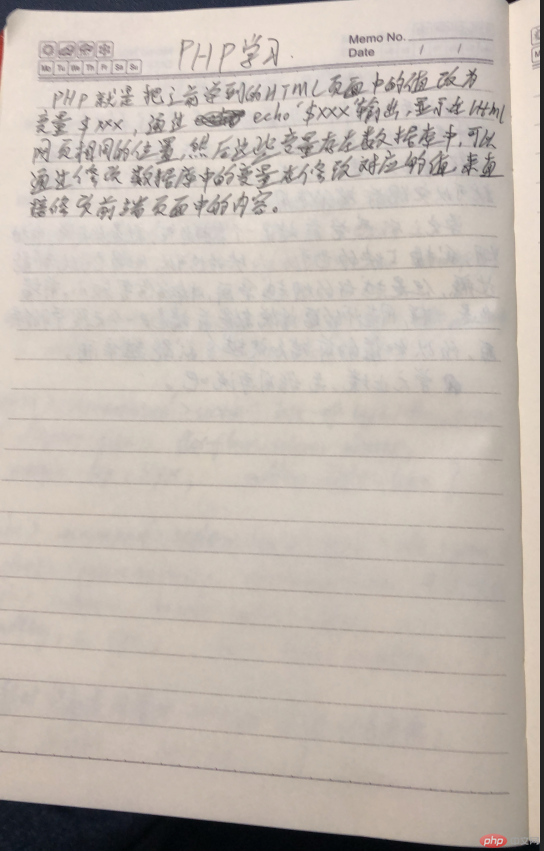 PHP学习
Memo No.
Date / /
Mo Tu We Th Fr Sa Su
PHP就是把之前学到的HTML页面中的值改为
变量$xxx,通过 echo "$xxx"输出,显示在Html
网页相同的位置,然后这些变量存在数据库中,可以
通过修改数据库中的变量来修改对应的值,来直
接修改前端页面中的内容。
php